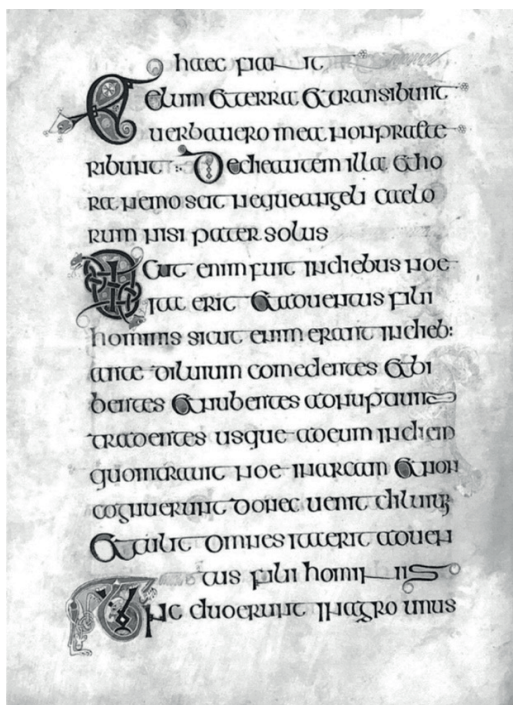 haec fiant
Celum et terra et transibunt
uerba uero mea non praete
ribunt De die autem illa et ho
ra nemo scit neque angeli caelo
rum nisi pater solus
Sicut enim fuit in diebus noe
ita erit et aduentus filii
hominis sicut enim erant in dieb:
ante diluuium comedentes et bi
bentes et nubentes ad nuptum
tradentes usque ad eum in diem
quo intrauit noe in arcam et non
cognuerunt donec uenit diluuium
et tulit omnes ita erit aduen
tus filii hominis
Tunc duo erunt in agro unus